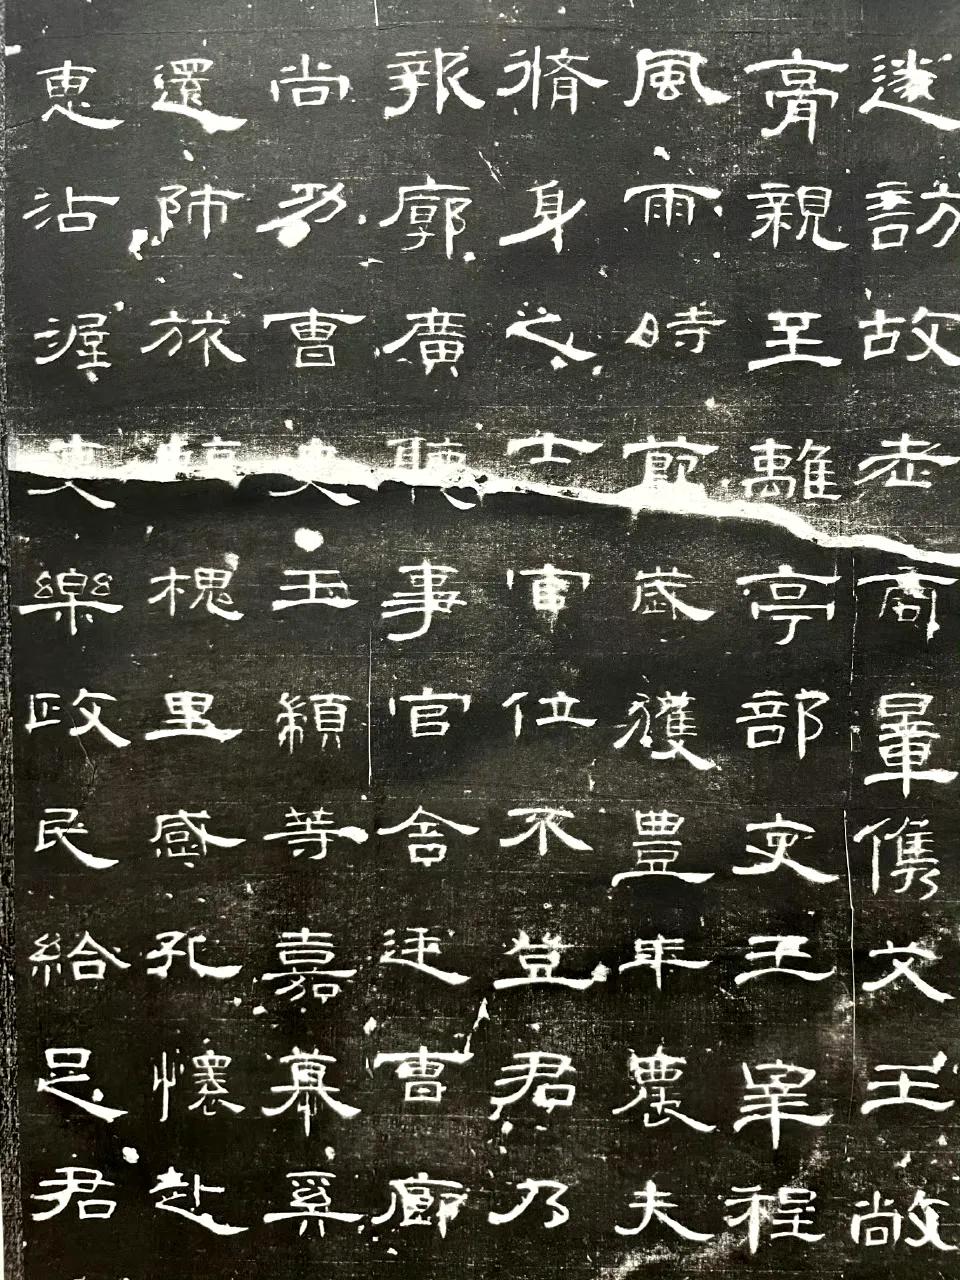 遂訪故老商量儁艾王敞
膏親至離亭部吏王宰程
風雨時節歲獲豐年農夫
脩身之士官位不登君乃
報廓廣聽事官舍廷曹廊
尚功曹史王顓等嘉慕奚
還師旅臨槐里感孔懷赴
惠沾渥吏樂政民給足君